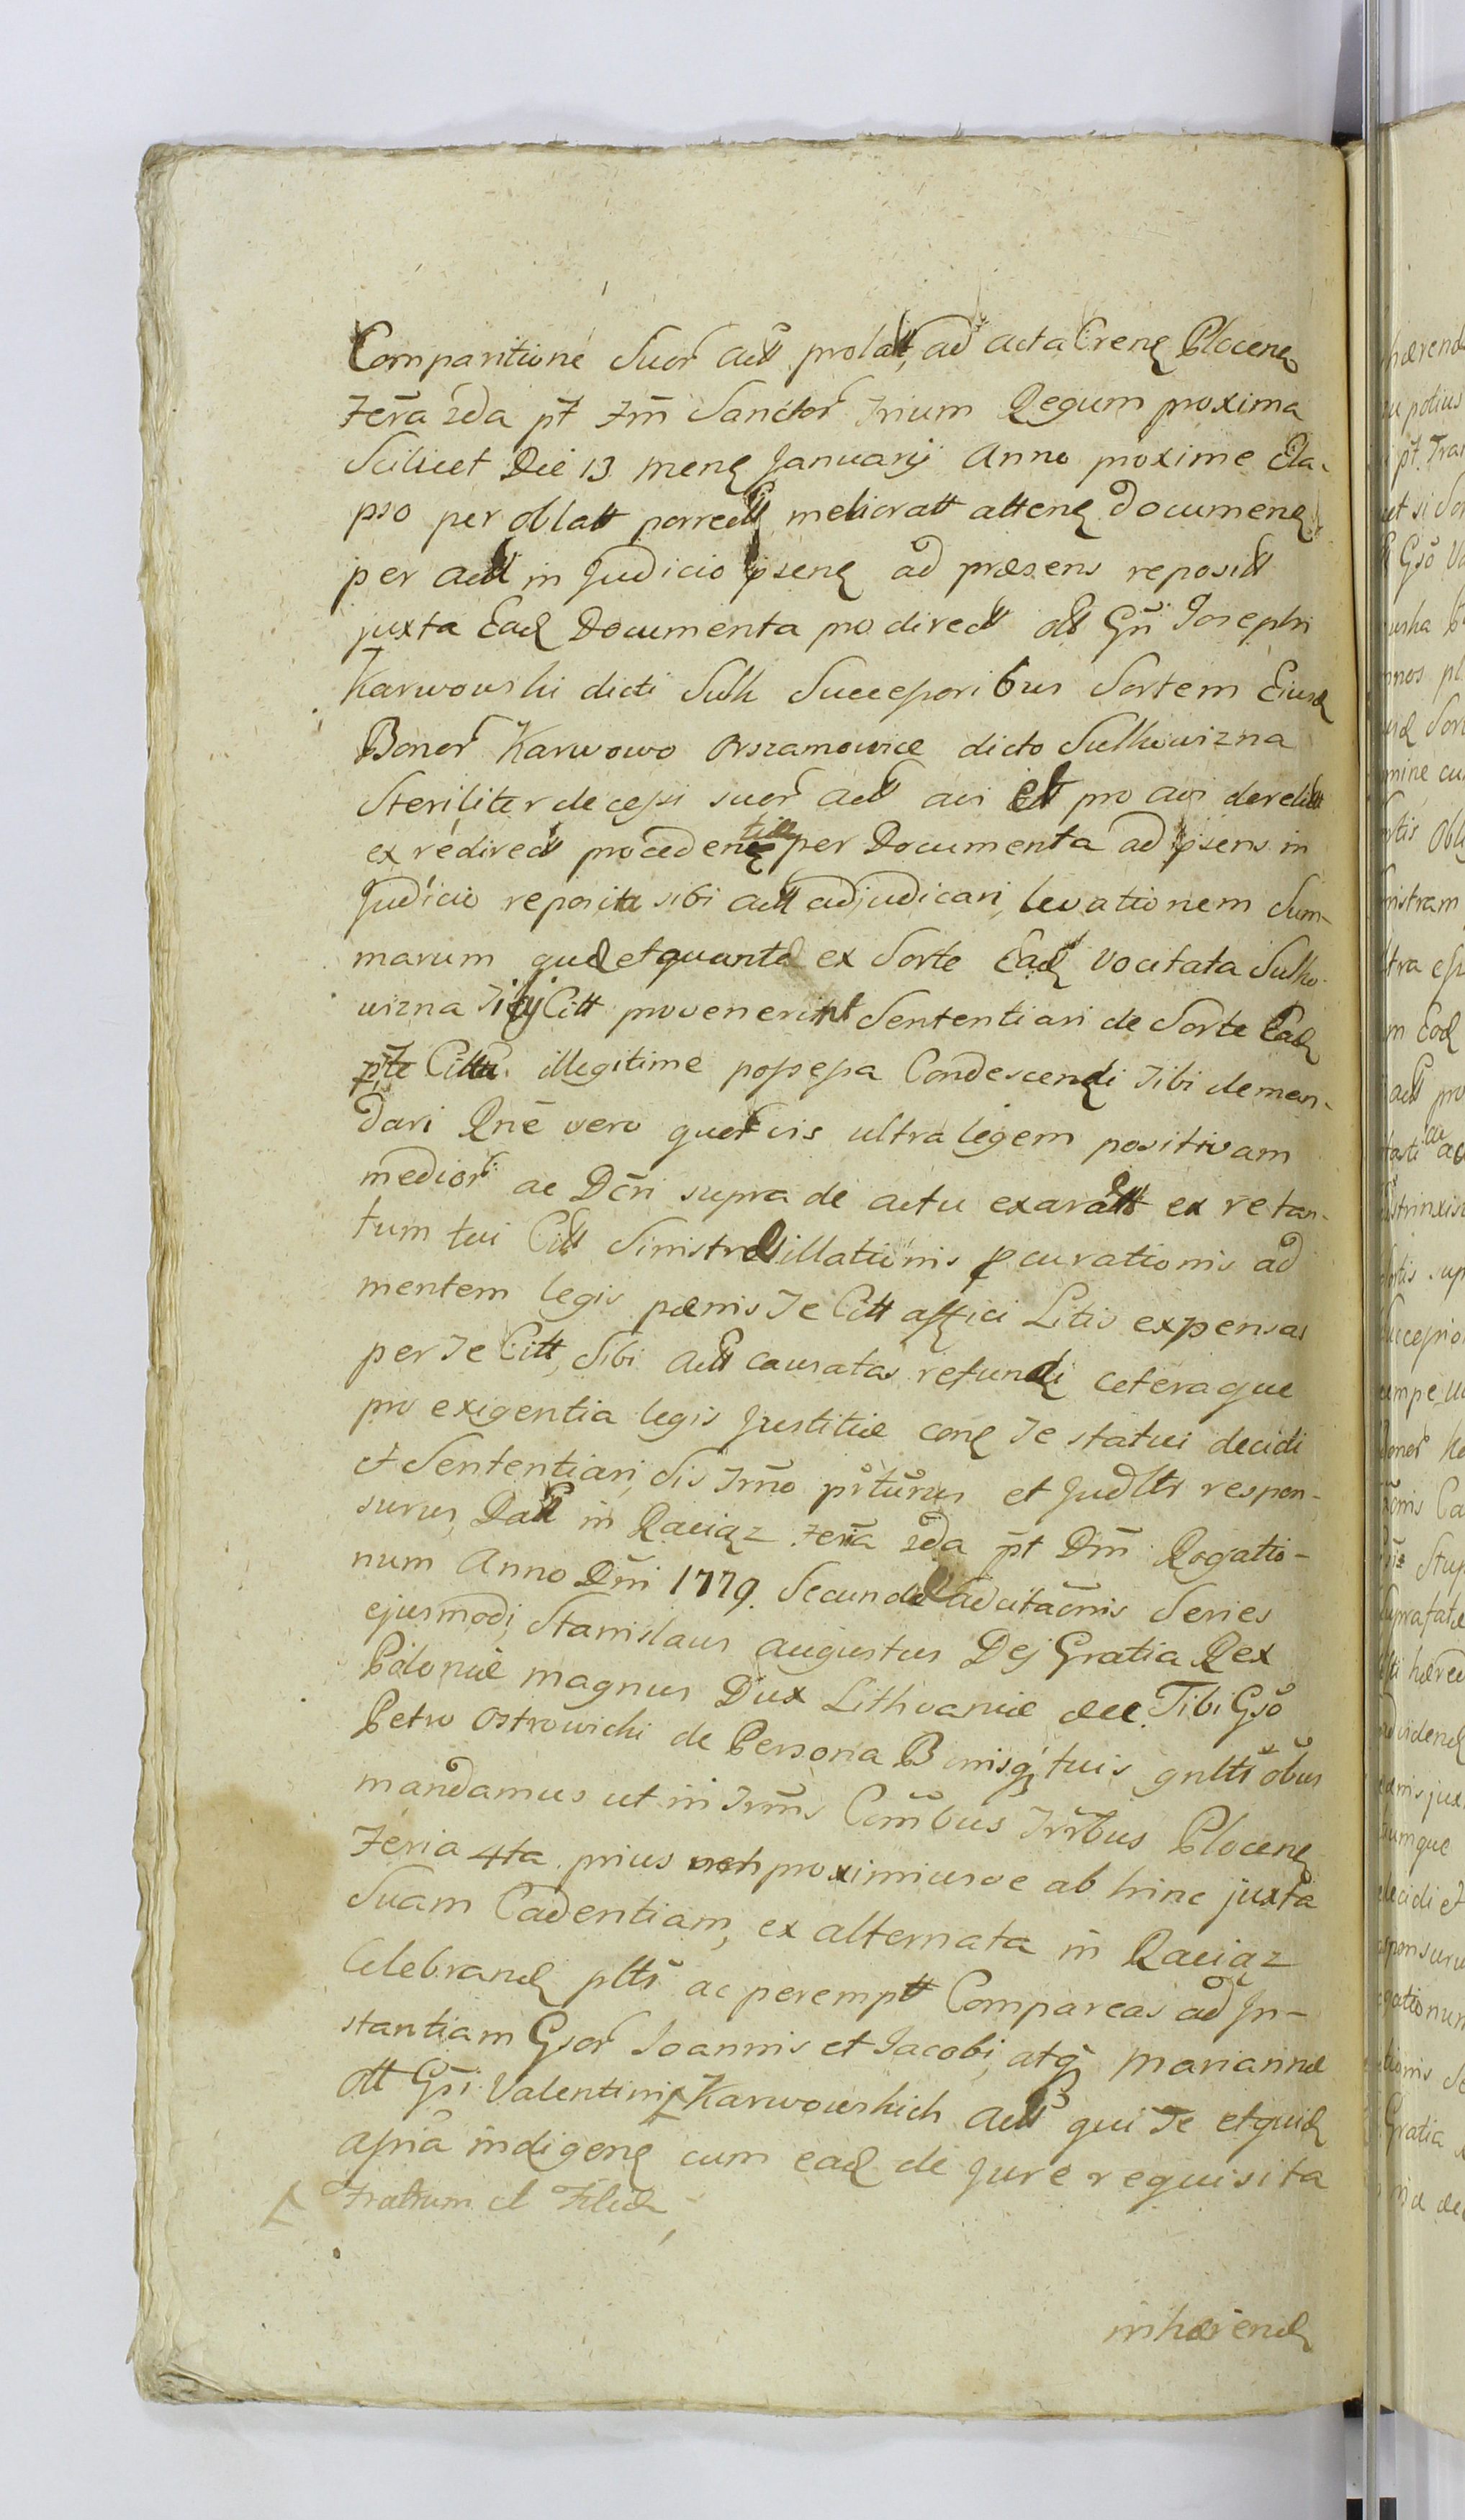 Comparitione Suor Actt prolatt, ad acta Crenę Plocenę
Feria 2da pt Fm Sanctor Trium Regum proxima
Scilicet Die 13 menę Januarij Anno proxime Ela-
pso per oblatt porrectt melioratt attenę Documenę
per Actt in Judicio psenę ad præsens repositt
juxta Eadę Documenta pro directt olt Gn̄i Josephi
Karwowski dicti Sulk Successoribus Sortem Eiusdę
Bonor Karwowo Orszamowice dicto Sulkowizna
Steriliter decessi suor actt avi ett pro avi derelictt
ex redirectt procedentia per Documenta ad psens in
Judicio reposita sibi actt adjudicari, levationem Sum-
marum quæ et quantæ ex Sorte Eadę vocitata Sulko-
wizna Citt provenerint Sententiari de Sorte Eadę
pte Citta illegitime possessa Condescendi Tibi deman-
dari Rnē vero quorvis ultra legem positivam
medior ac Dcn̄i supra de actu exaratt ex re tan-
tum tui Citt Sinistræ illationis ꝑ curationis ad
mentem legis pœnis Te Citt affici Litis expensas
per Te Citt, Sibi Actt causatas refundi ceteraque
pro exigentia legis Justitiæ conę Te statui decidi
et Sententiari, Sis Trm̄o pr̄turus et Judltr respon-
surus, Datt in Raciąz Feria 2da pt Dm̄ Rogatio-
num Anno Dn̄i 1779. Secundæ adcitaōnis Series
ejusmodi, Stanislaus augustus Dej Gratia Rex
Poloniæ magnus Dux Lithvaniæ &c. Tibi Gso
Petro Ostrowicki de Persona Bonisq tuis gnltr obus
mandamus ut in Trm̄s Com̄bus Trrbus Plocenę
Feria 4ta prius proximiusve ab hinc juxta
Suam Cadentiam, ex alternata in Raciąz
Celebrandę pltr ac peremptt Compareas ad In-
stantiam Gsor Joannis et Jacobi, atq Mariannæ
olt Gs̄i Valentini Karwowskich Actt qui Te et quidę
assn̄a indigenę cum eadę de Jure requisita
Fratrum et Filiæ
inhærendę